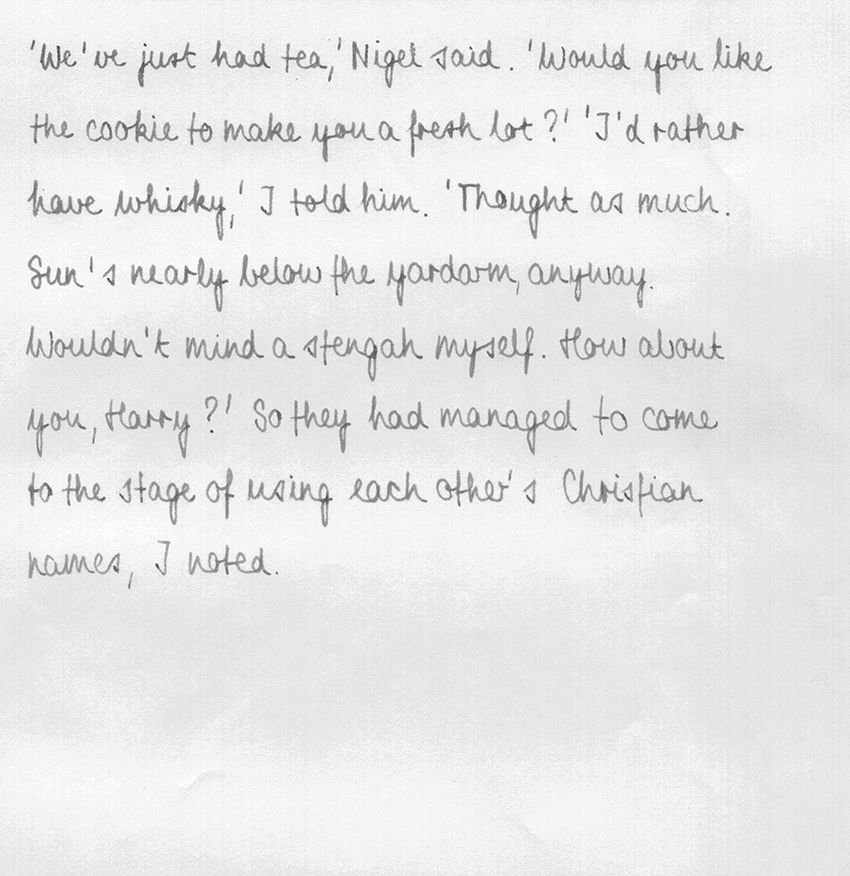 'We've just had tea,' Nigel said. 'Would you like
the cookie to make you a fresh lot?' 'I'd rather
have whisky,' I told him. 'Thought as much.
Sun's nearly below the yardarm, anyway.
Wouldn't mind a stengah myself. How about
you, Harry?' So they had managed to come
to the stage of using each other's Christian
names, I noted.